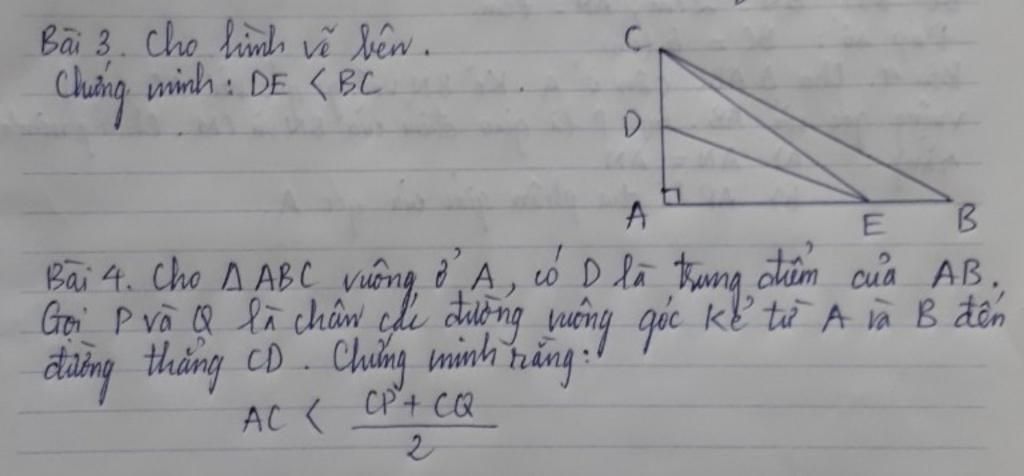 Bài 3. Cho hình vẽ bên.
Chứng minh: DE < BC
C
D
A
E
B
Bài 4. Cho △ABC vuông ở A, có D là trung điểm của AB.
Gọi P và Q là chân các đường vuông góc kẻ từ A và B đến
đường thẳng CD. Chứng minh rằng:
AC < \frac{CP + CQ}{2}